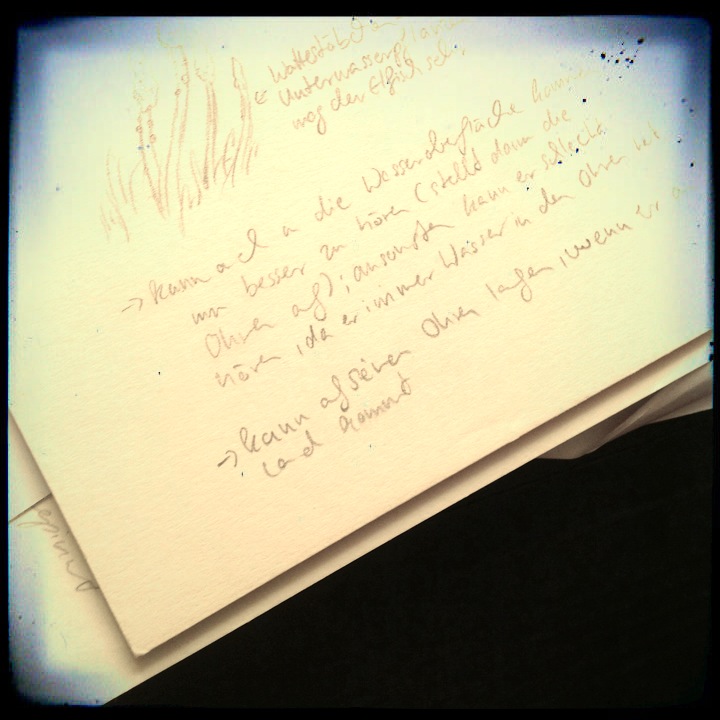 Wattestäbchen
Unterwasserpflanze
mag der Elfisch sehr
→ kann auch an die Wasseroberfläche kommen
um besser zu hören (stellt dann die
Ohren auf); ansonsten kann er schlecht
hören, da er immer Wasser in den Ohren hat
→ kann auf seinen Ohren laufen, wenn er a
Land kommt